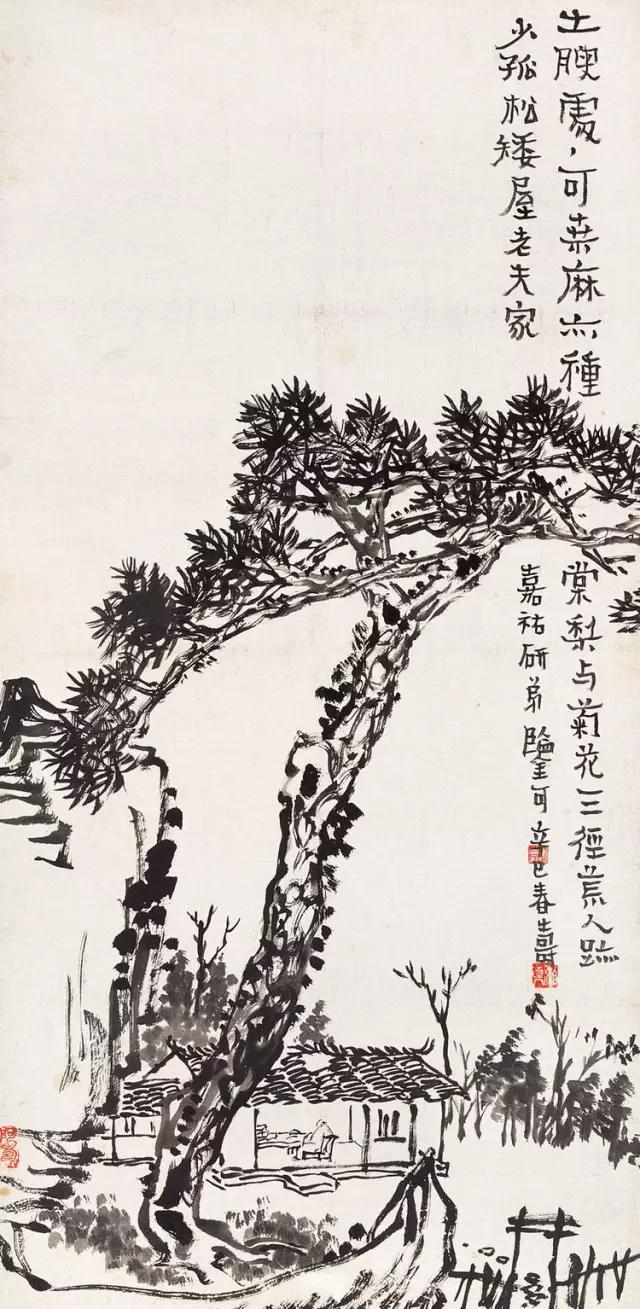 土腴處々可桑麻亦種
棠梨与菊花三徑荒人跡
少孤松矮屋老夫家
嘉祐研弟鑒可辛巳春壽